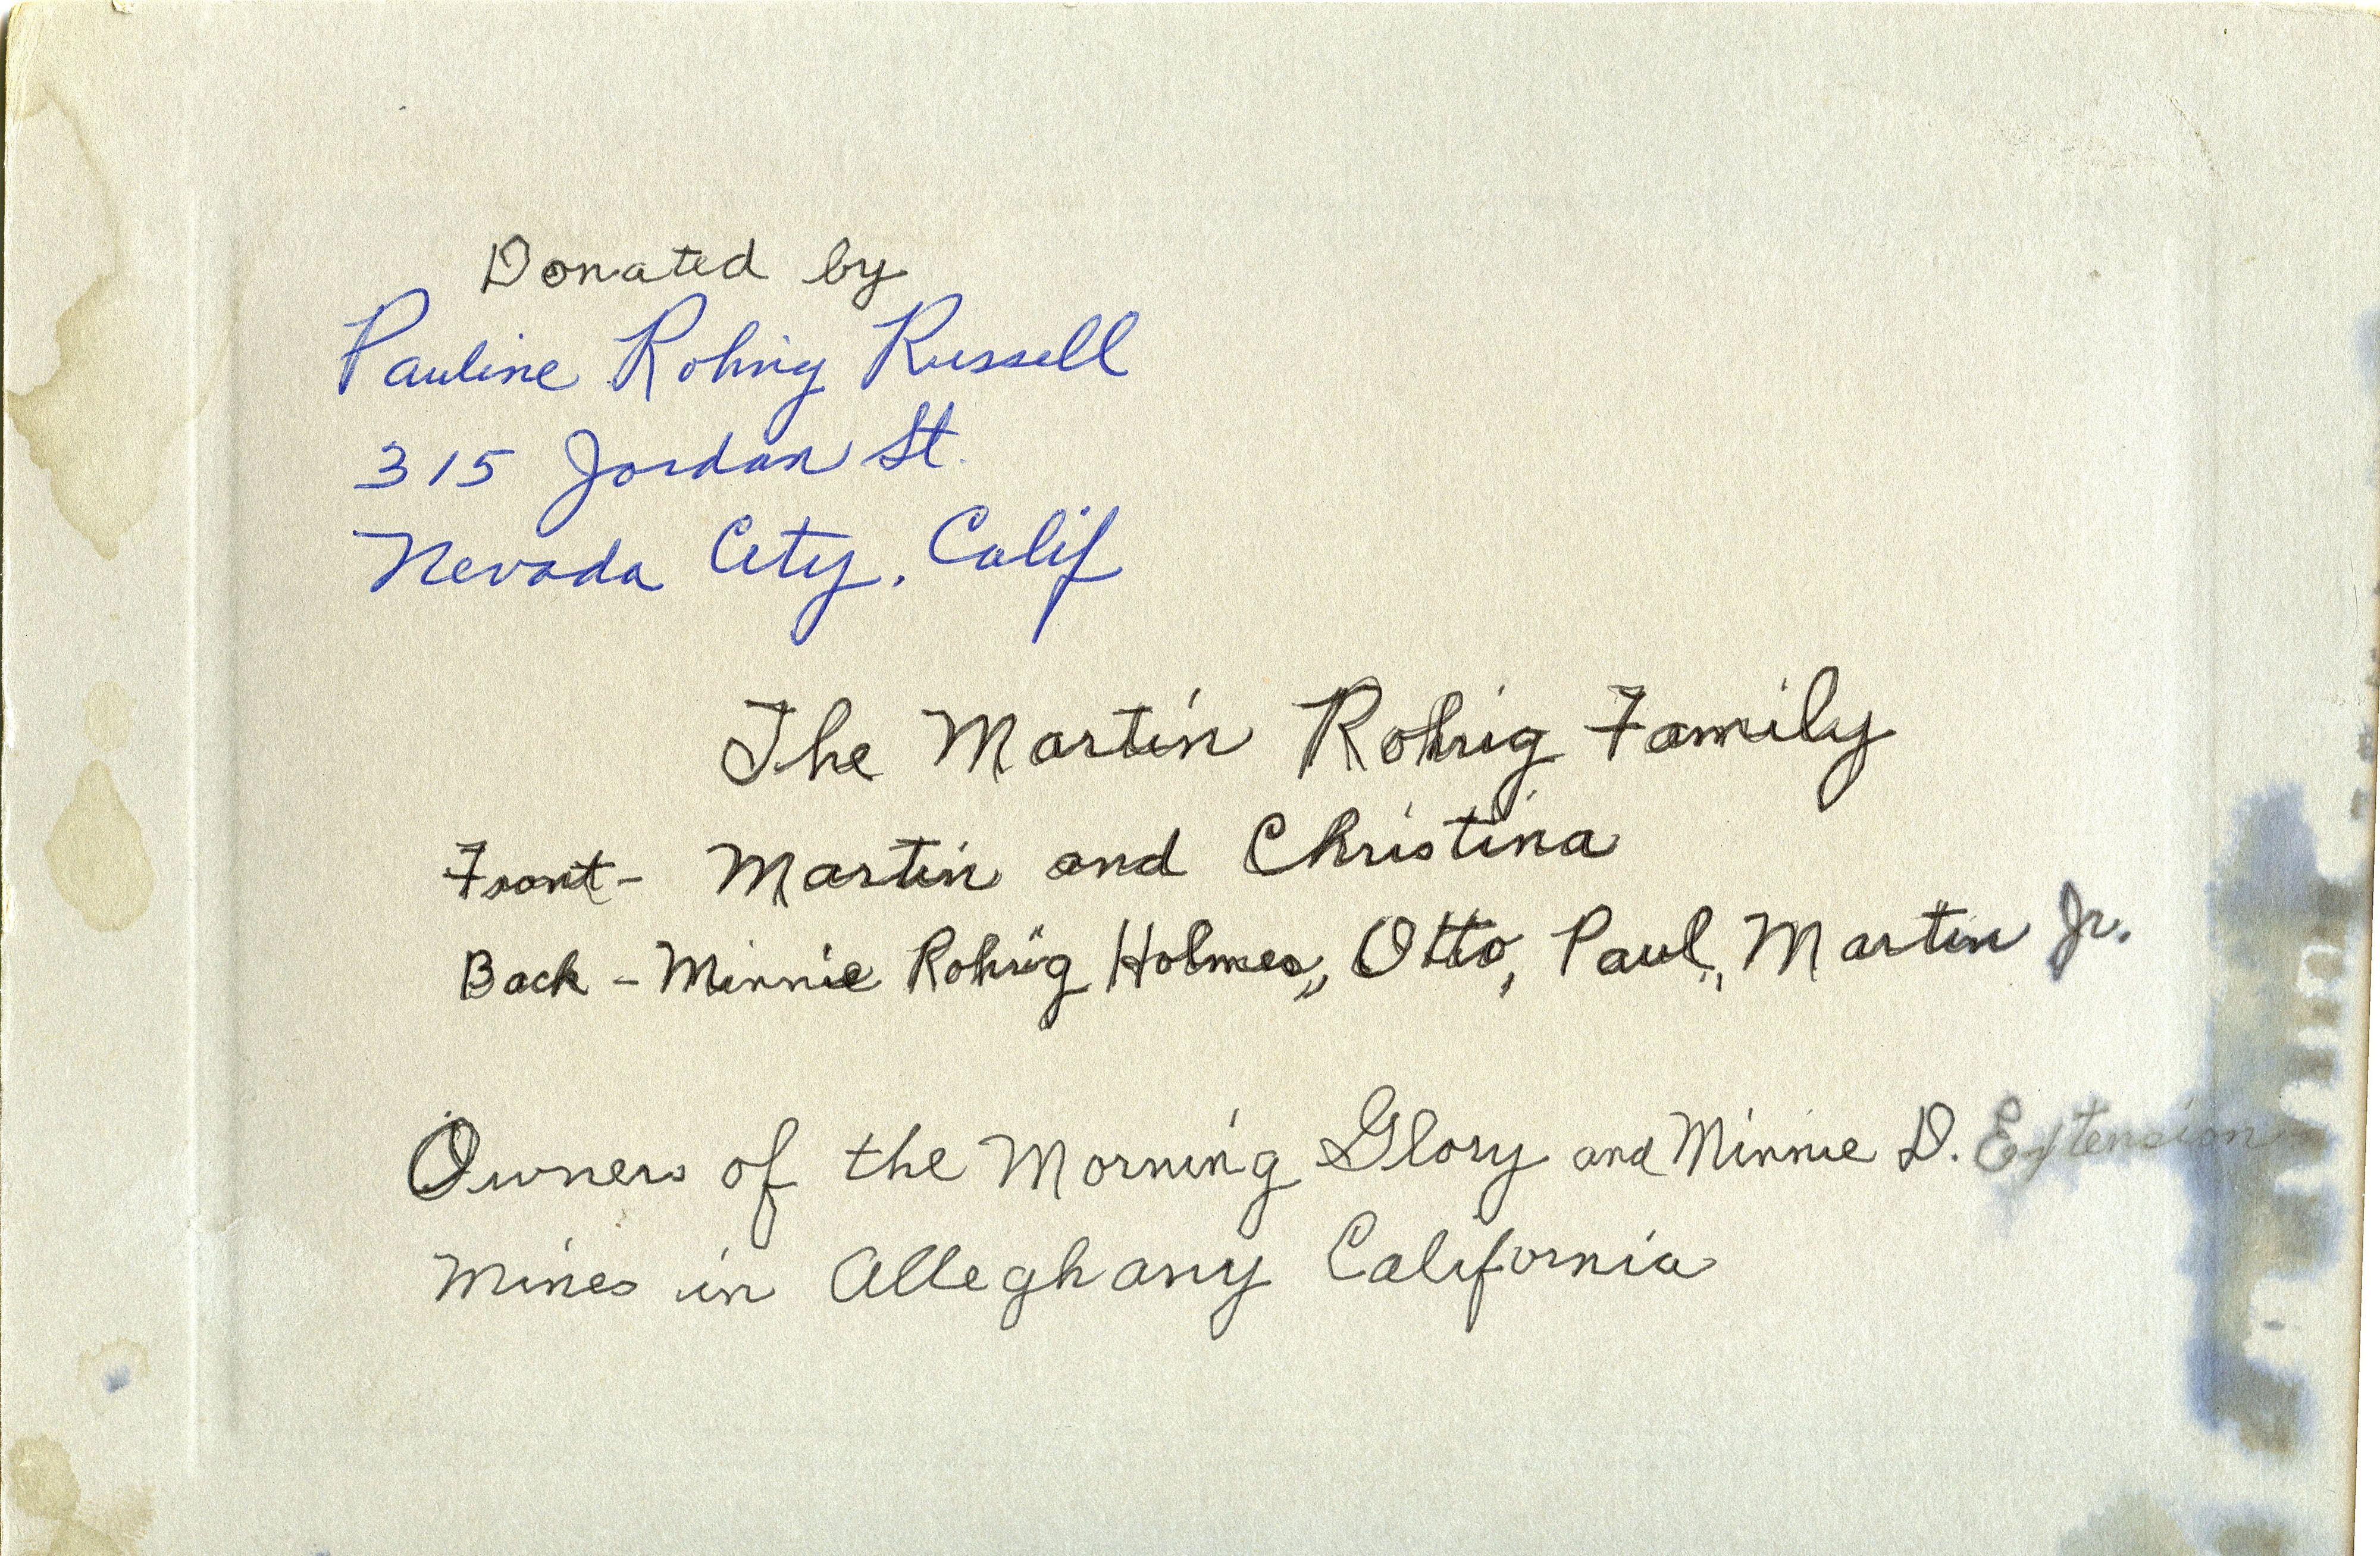 Donated by
Pauline Rohrig Russell
315 Jordan St.
Nevada City, Calif
The Martin Rohrig Family
Front - Martin and Christina
Back - Minnie Rohrig Holmes, Otto, Paul, Martin Jr.
Owners of the Morning Glory and Minnie D. Extension
Mines in Alleghany California